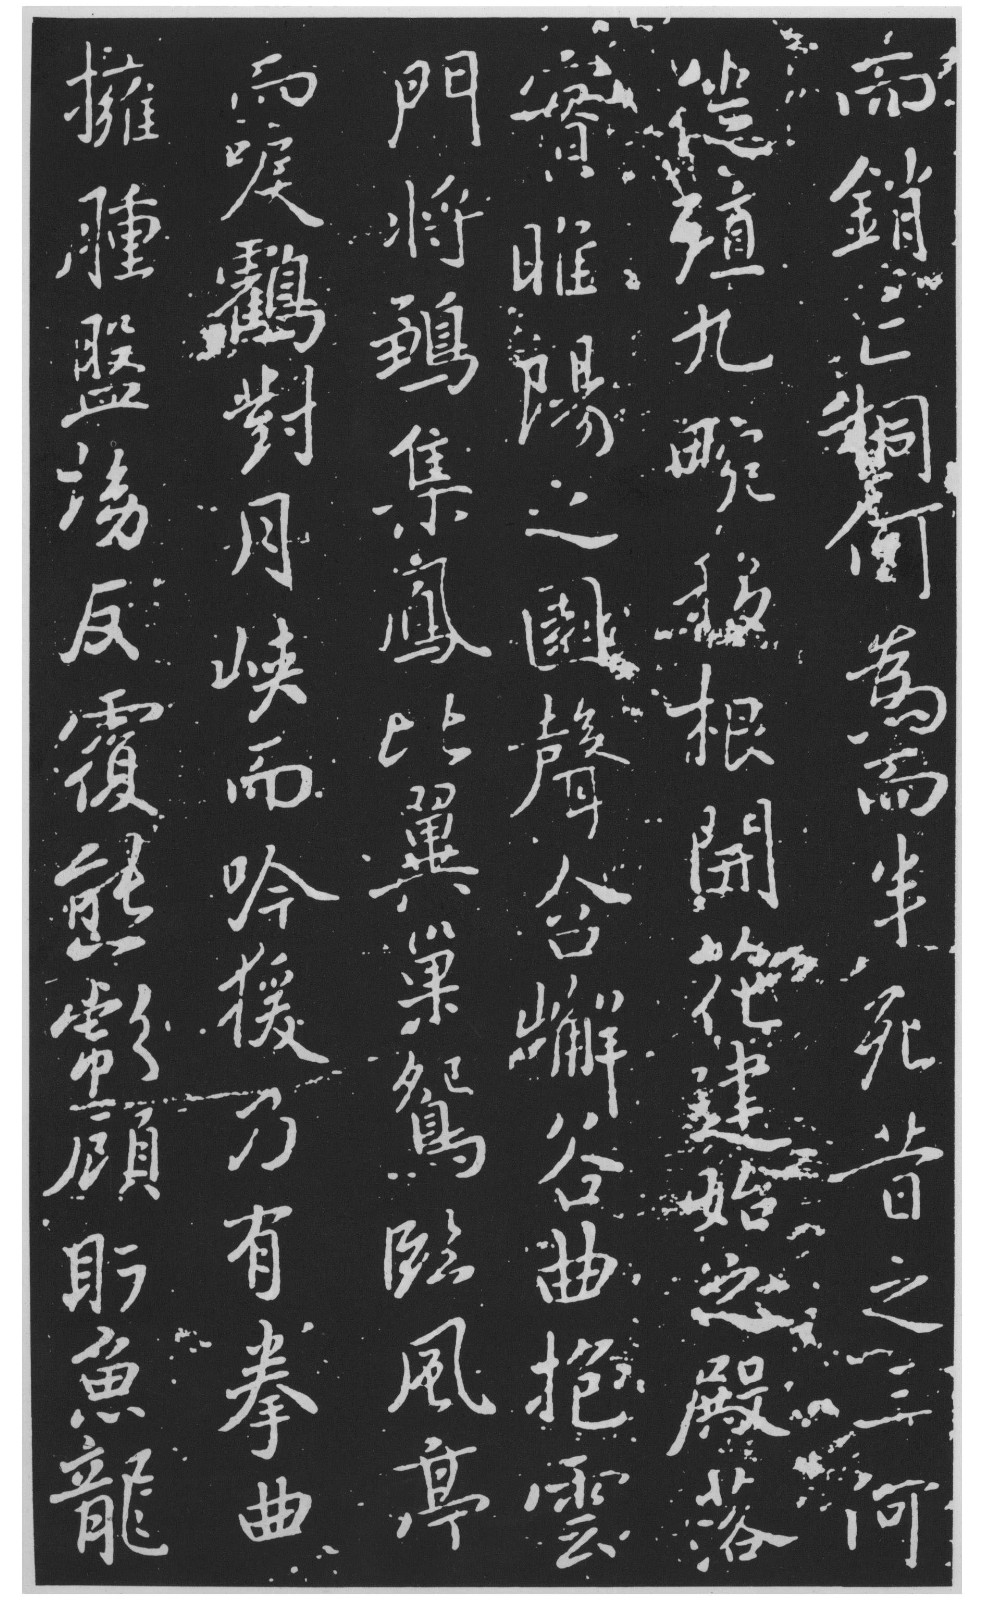 而銷亡桐何為而半死昔之三河
徙殖九畹移根開花建始之殿落
實睢陽之園聲含嶰谷曲抱雲
門將鶵集鳳比翼巢鴛臨風亭
而唳鸖對月峽而吟猨乃有拳曲
擁腫盤坳反覆熊彪顧盻魚龍